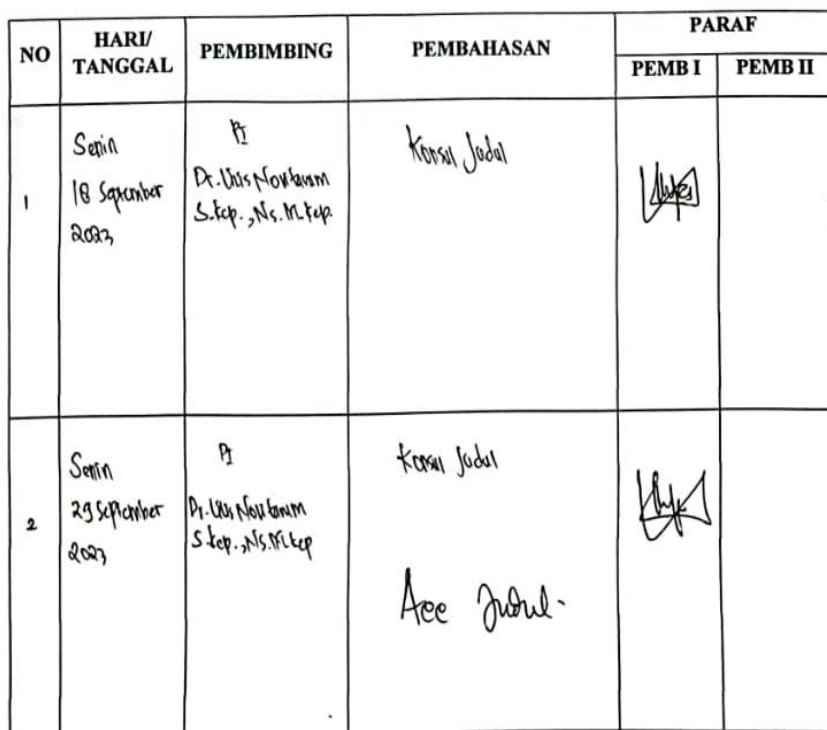 NO
HARI/
TANGGAL
PEMBIMBING
PEMBAHASAN
PARAF
PEMB I
PEMB II
1
Senin
18 September
2023
PI
Dr. Uus Novitarum
S.Kep., Ns. M.Kep
Konsul Judul
2
Senin
29 September
2023
PI
Dr. Uus Novitarum
S.Kep., Ns. M.Kep
Konsul Judul
Acc Judul.